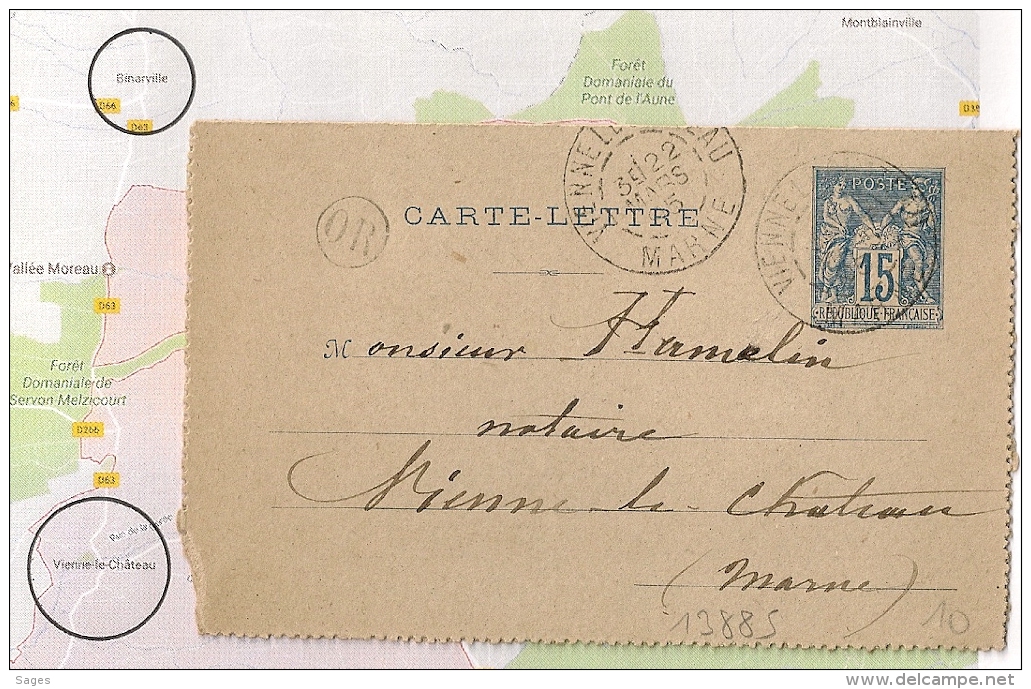 Montblainville
Binarville
Forêt
Domaniale du
Pont de l'Aune
D66
D63
D38
VIENNE LE CHATEAU
5E 22
MARS
95
MARNE
OR
CARTE-LETTRE
POSTES
15
REPUBLIQUE FRANÇAISE
VIENNE
Vallée Moreau
D63
Monsieur Hamelin
Forêt
Domaniale de
Servon-Melzicourt
notaire
D266
D63
Vienne-le-Château
Vienne-le-Château
(Marne)
13885
10
Sages
www.delcampe.net